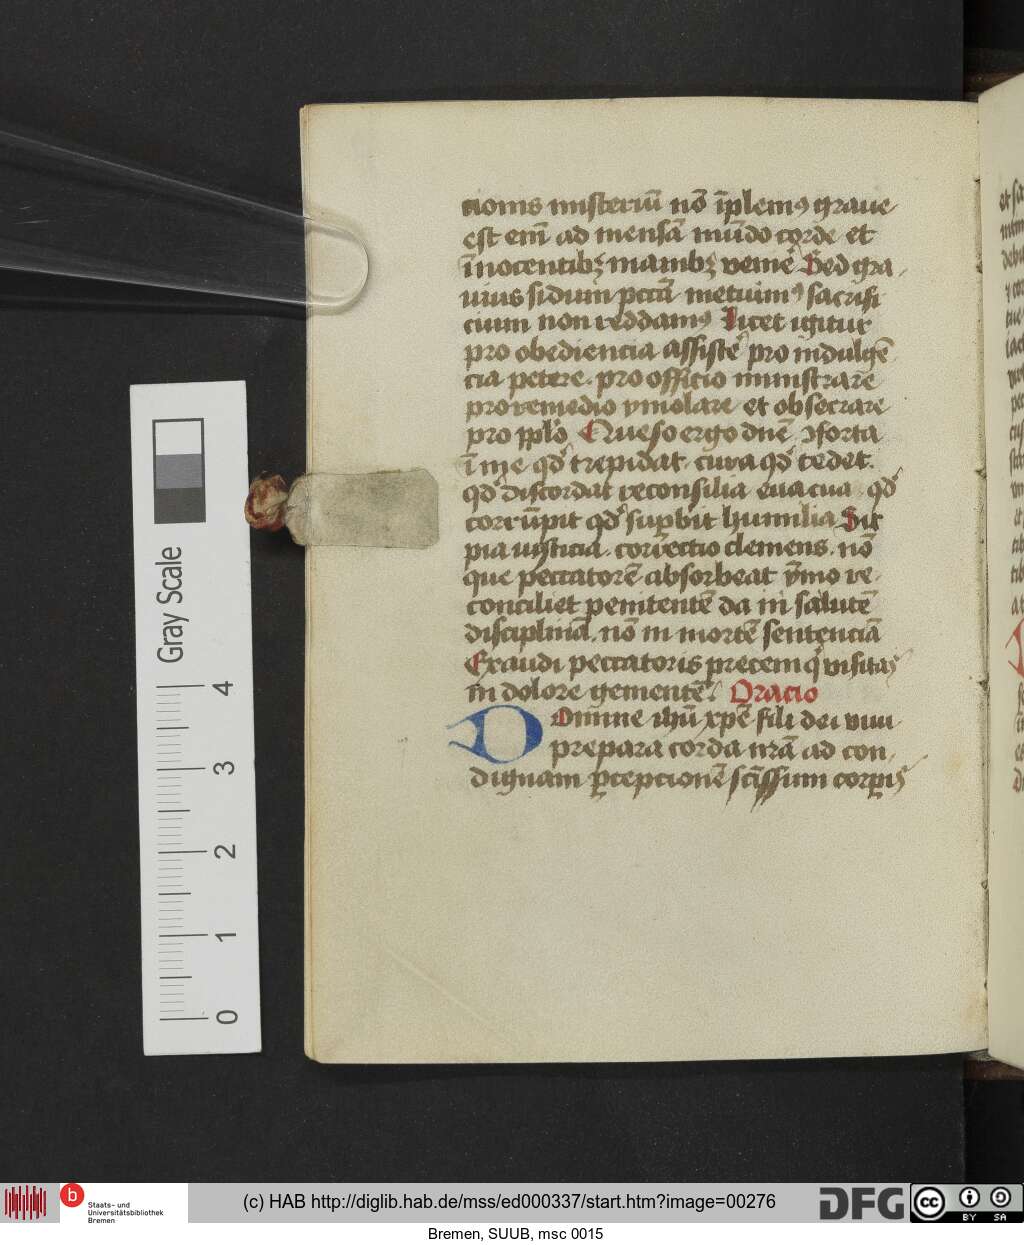 cionis misteriū nō īplemꝯ graue
est em̄ ad mensā mūdo corde et
īnocentibꝫ manibꝫ venire Sed gra
uius si dum pccā metuimꝯ sacrifi
cium non reddamꝯ Licet igitur
pro obediencia assistē pro indulgē
cia petere. pro officio ministrare
pro remedio ymolare et obsecrare
pro pplo. Queso ergo dn̄e ꝯforta
ī me qd̓ trepidat. cura qd̓ tedet.
qd̓ discordat reconsilia euacua qd̓
corrūpit qd̓ supbit humilia Sit
pia iusticia. correctio clemens. nō
que peccatorē absorbeat ymo re
conciliet penitentē da in salutē
disciplinā. nō in mortē sentenciā
Exaudi peccatoris precem q̓ visitas
in dolore gementē. Oracio
Domine ihū xpē fili dei viui
prepara corda nrā ad con
dignam ꝑcepcionē scīssimi corpis
Gray Scale
4
3
2
1
0
b Staats- und
Universitätsbibliothek
Bremen
(c) HAB http://diglib.hab.de/mss/ed000337/start.htm?image=00276
DFG
cc BY SA
Bremen, SUUB, msc 0015